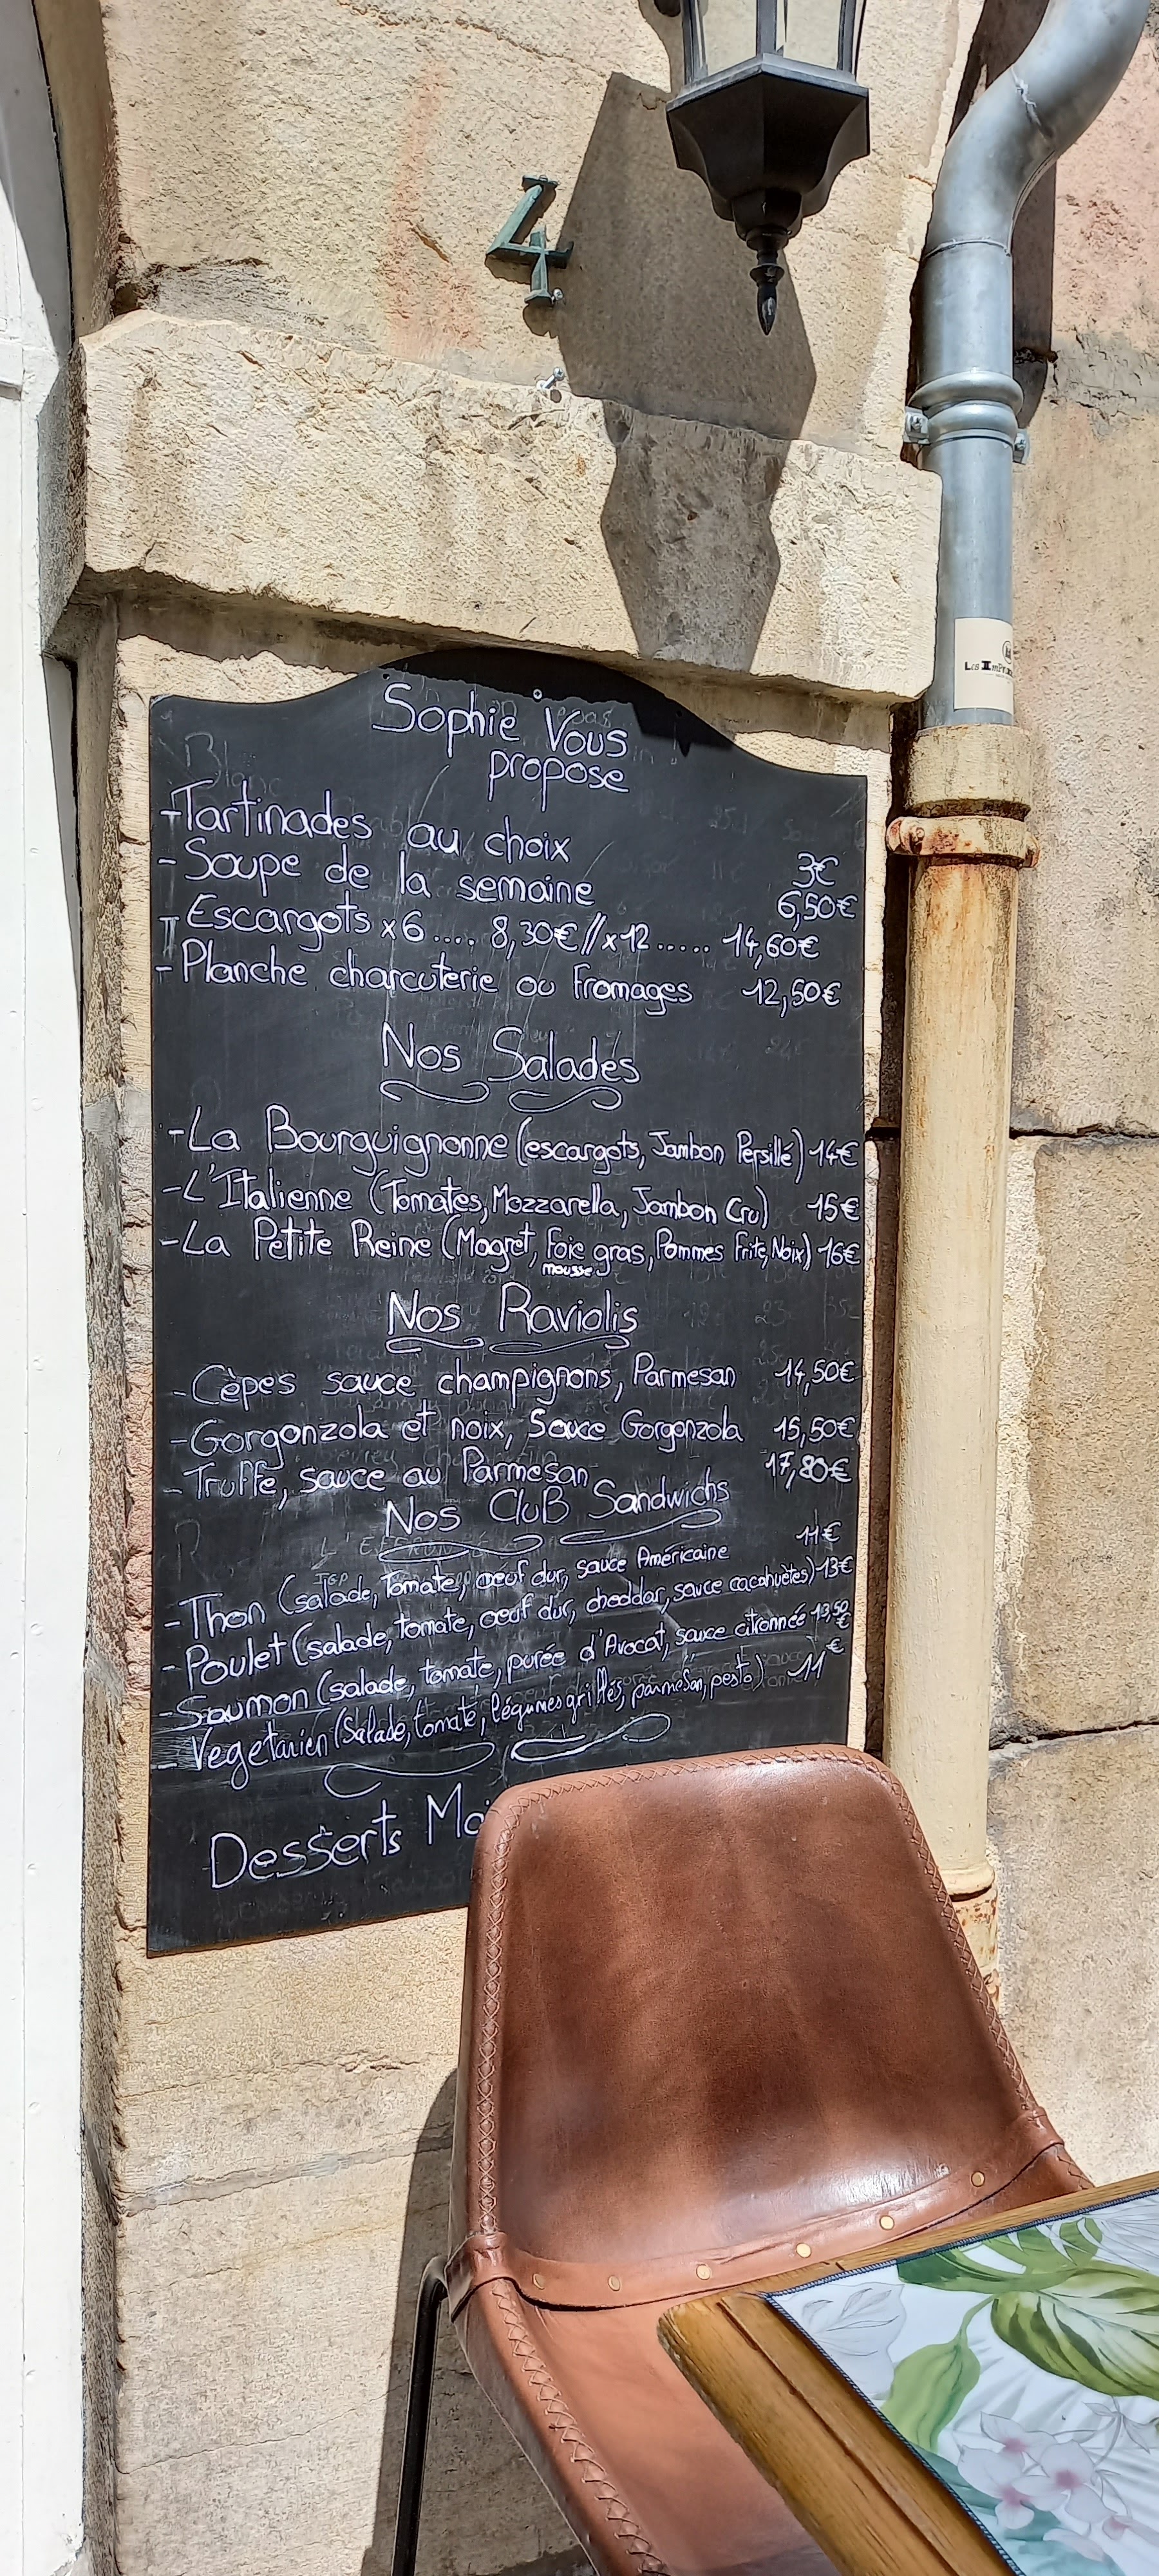 4
Les Impr
Sophie Vous
propose
- Tartinades au choix 3€
- Soupe de la semaine 6,50€
- Escargots x6 .... 8,30€ // x12 ..... 14,60€
- Planche charcuterie ou Fromages 12,50€
Nos Salades
- La Bourguignonne (escargots, Jambon Persillé) 14€
- L'Italienne (Tomates, Mozzarella, Jambon Cru) 15€
- La Petite Reine (Magret, Foie gras, Pommes Frite, Noix) 16€
mousse
Nos Raviolis
- Cèpes sauce champignons, Parmesan 14,50€
- Gorgonzola et noix, Sauce Gorgonzola 15,50€
- Truffe, sauce au Parmesan 17,80€
Nos CluB Sandwichs
- Thon (salade, Tomate, oeuf dur, sauce Américaine 11€
- Poulet (salade, tomate, oeuf dur, cheddar, sauce cacahuètes) 13€
- Saumon (salade, tomate, purée d'Avocat, sauce citronnée €
- Vegetarien (Salade, tomate, légumes grillés, parmesan, pesto) 11€
Desserts Mai